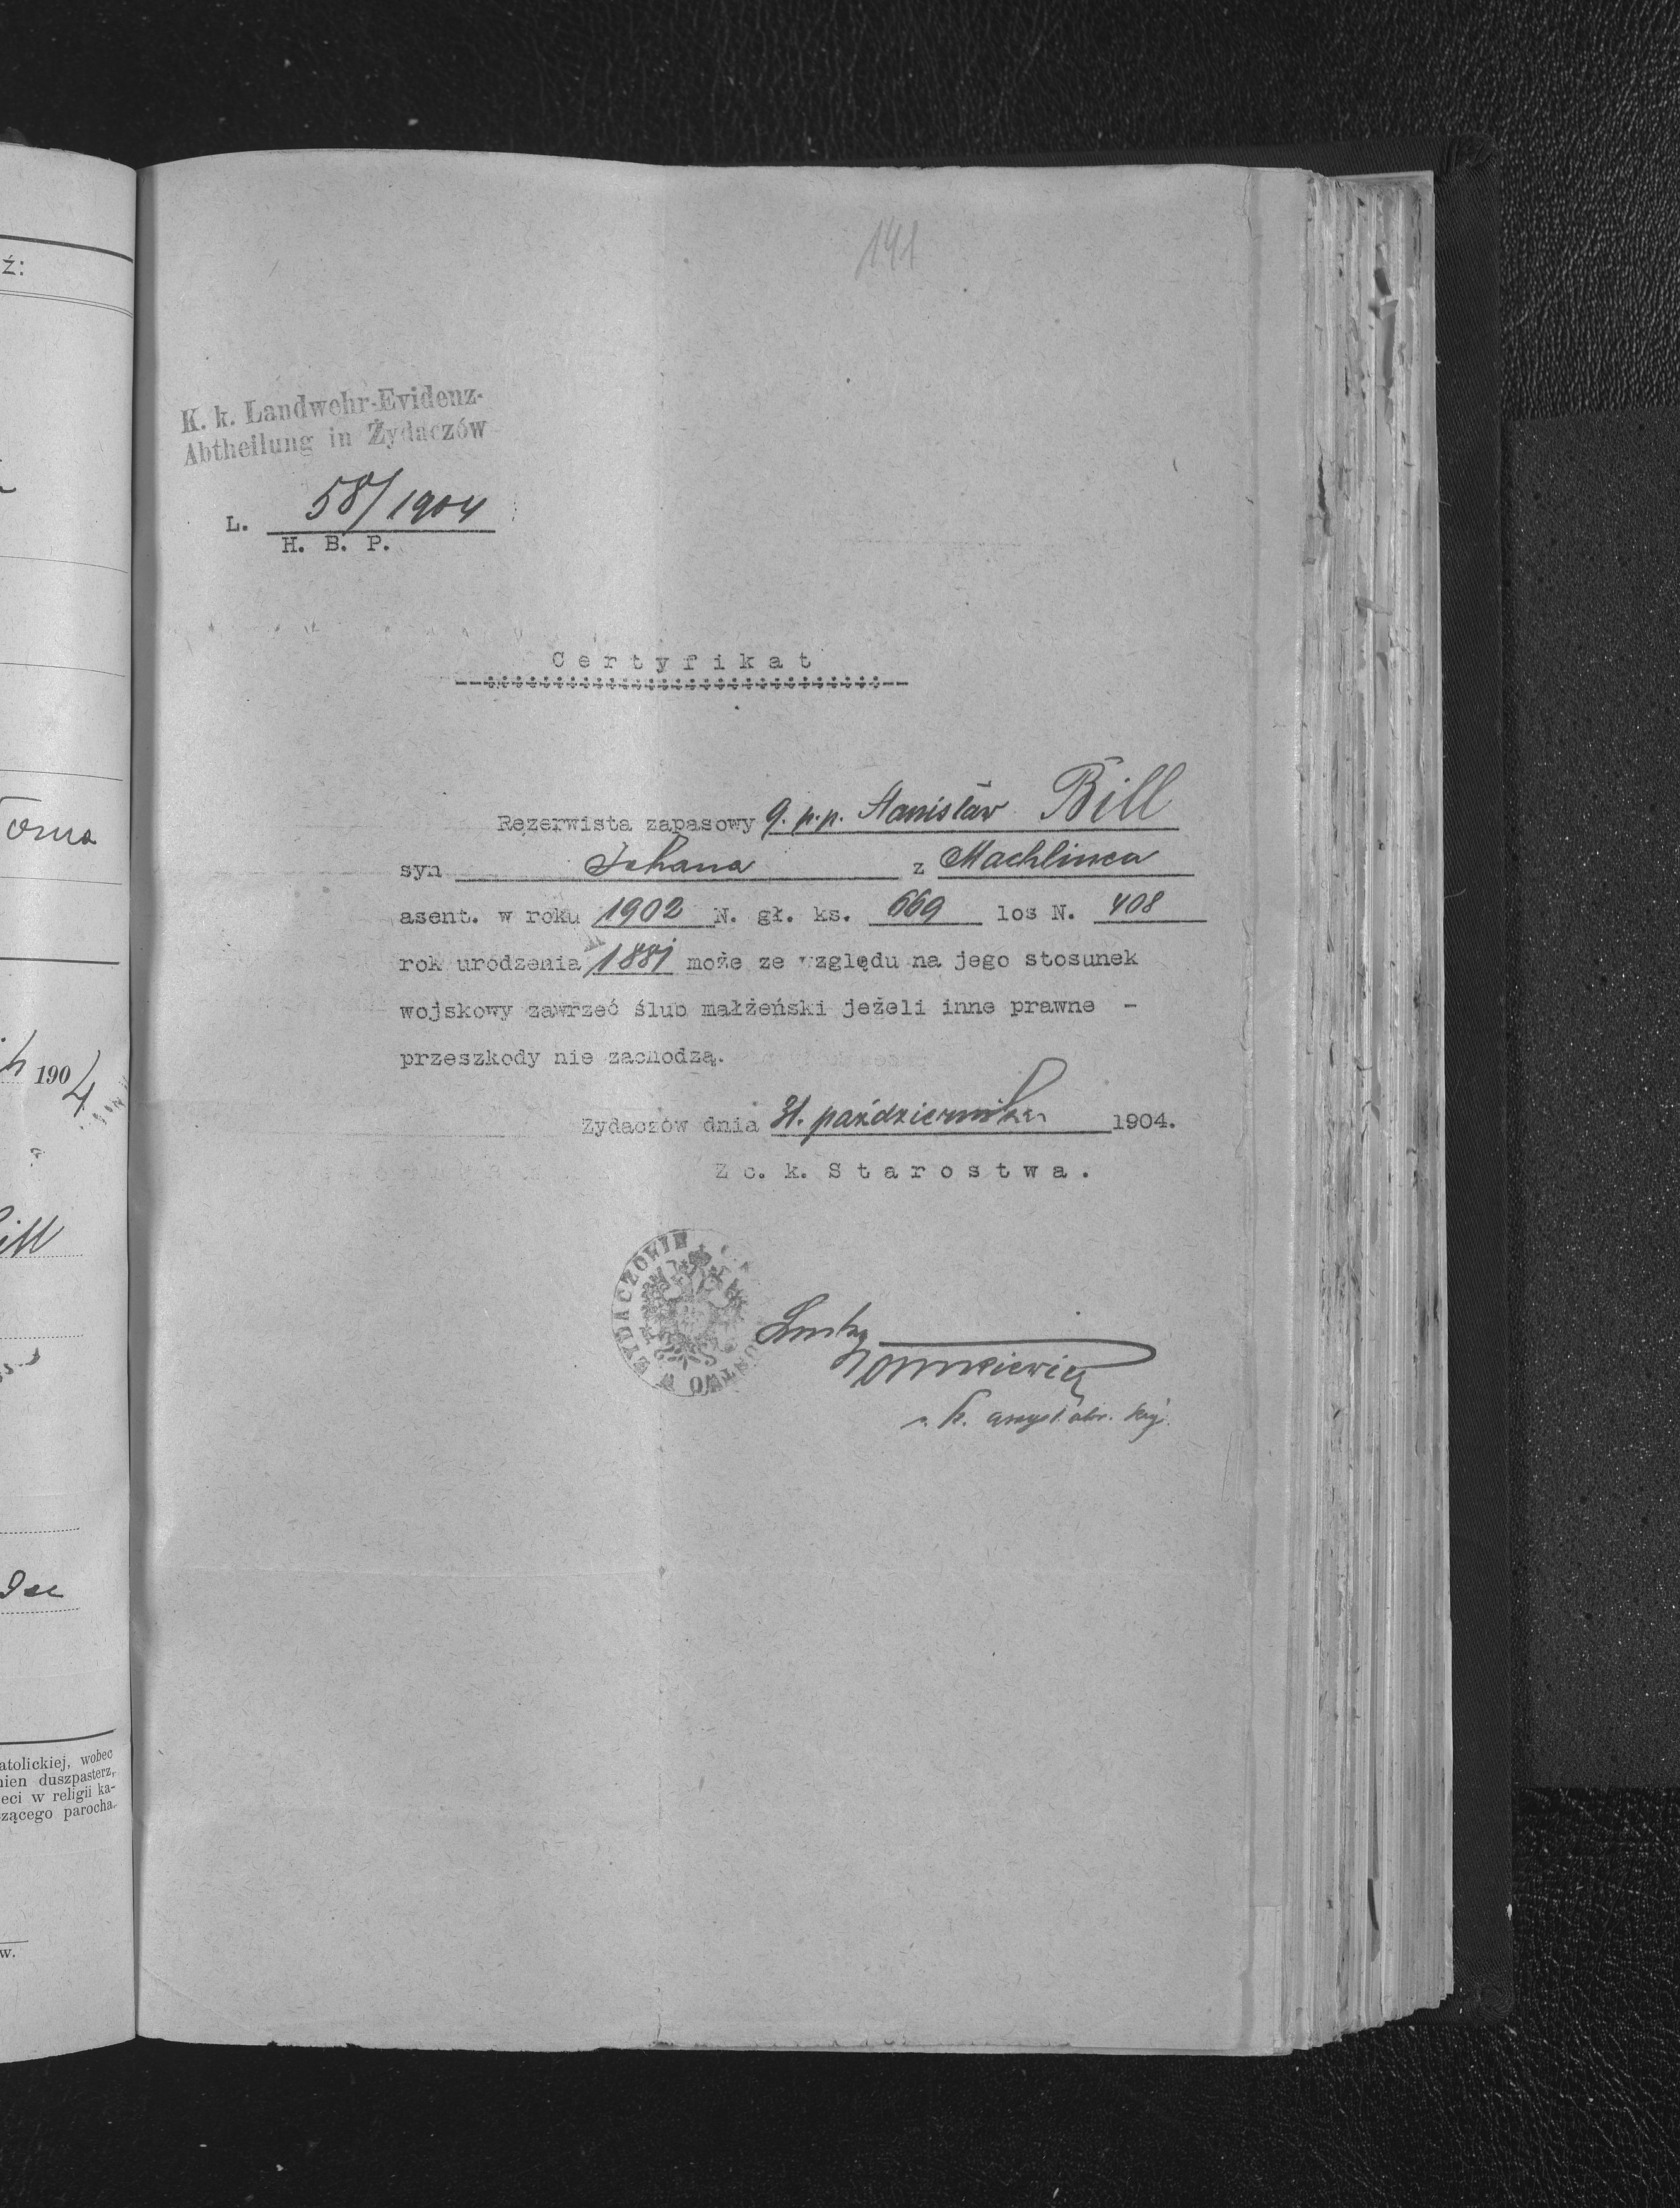 141
K. k. Landwehr-Evidenz-
Abtheilung in Żydaczów
L. 58/1904
H. B. P.
Certyfikat
Rezerwista zapasowy 9. p.p. Stanisław Bill
syn Johana z Machlińca
asent. w roku 1902 N. gł. ks. 669 los N. 408
rok urodzenia 1881 może ze względu na jego stosunek
wojskowy zawrzeć ślub małżeński jeżeli inne prawne -
przeszkody nie zachodzą.
Zydaczów dnia 31. października 1904.
Z c. k. Starostwa.
W ŻYDACZOWIE
ź:
1904
atolickiej, wobec
nien duszpasterz,
eci w religii ka-
zącego parocha.
w.